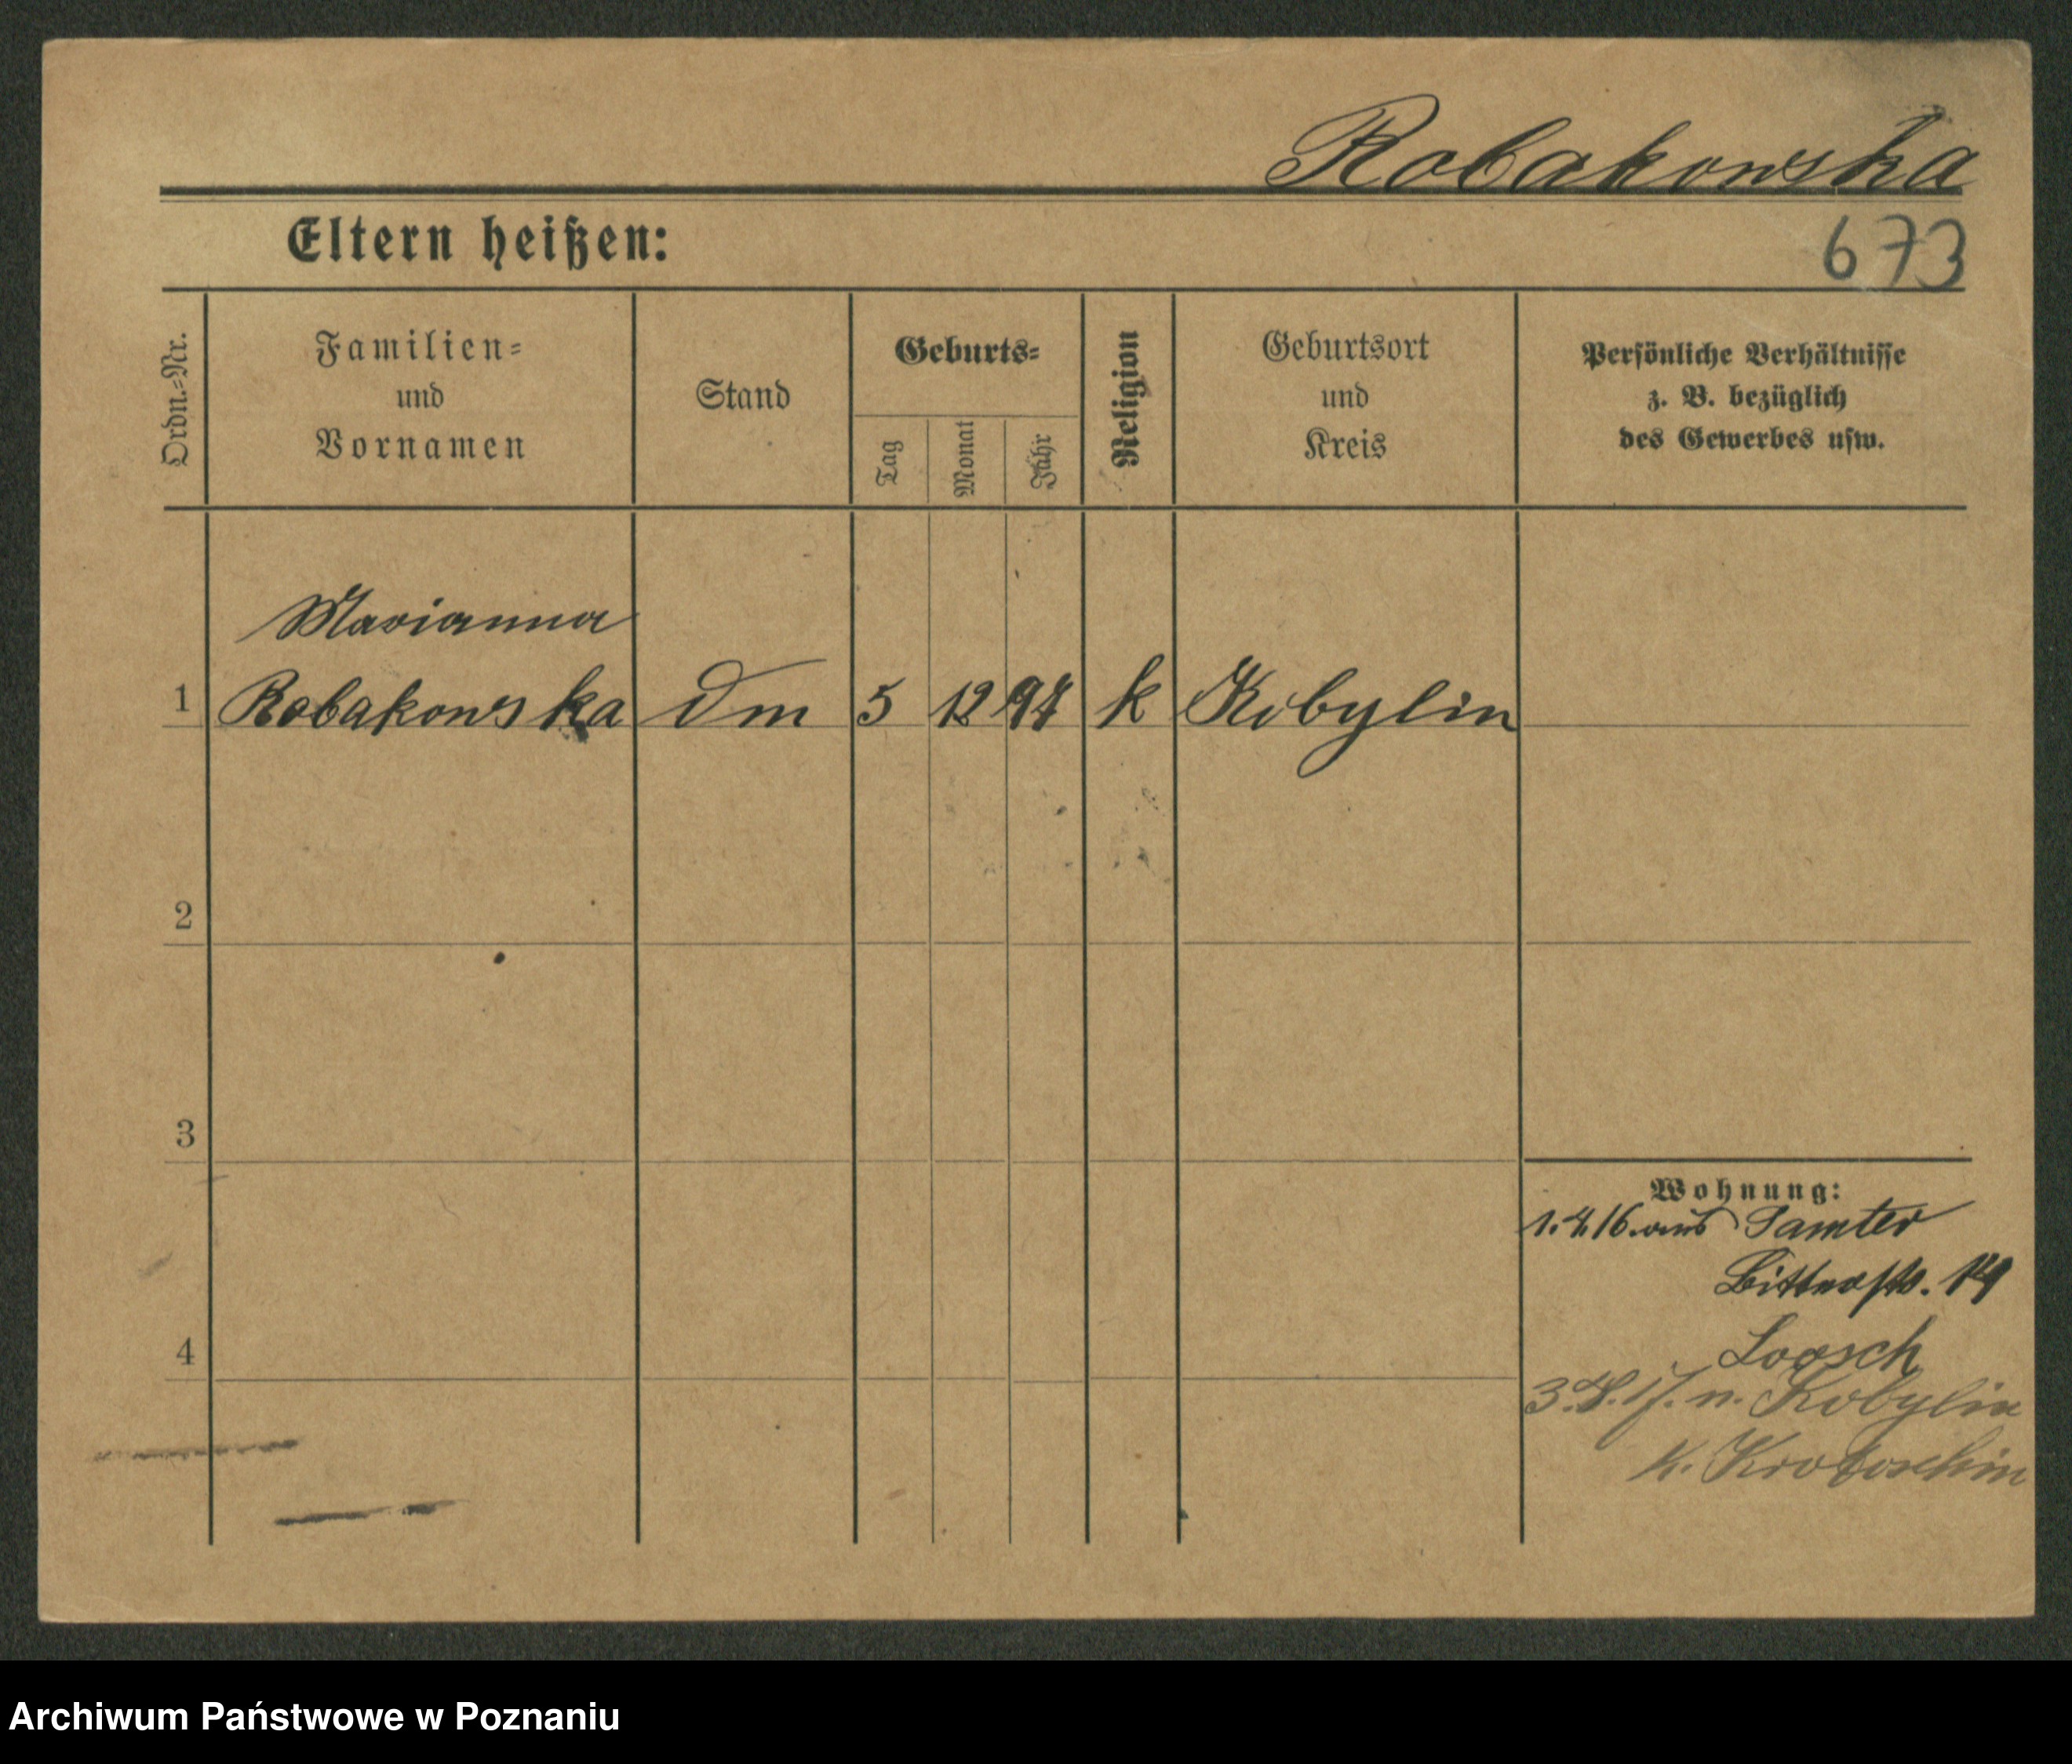 Robakowska
Eltern heißen:
673
Ordn.-Nr.
Familien-
und
Vornamen
Stand
Geburts-
Tag
Monat
Jahr
Religion
Geburtsort
und
Kreis
Persönliche Verhältnisse
z. B. bezüglich
des Gewerbes usw.
Marianna
1 Robakowska Dm 5 12 94 k Kobylin
2
3
Wohnung:
1.4.16. aus Samter
14
Loosch
4
3. 17. n. Kobylin
K. Krotoschin
Archiwum Państwowe w Poznaniu